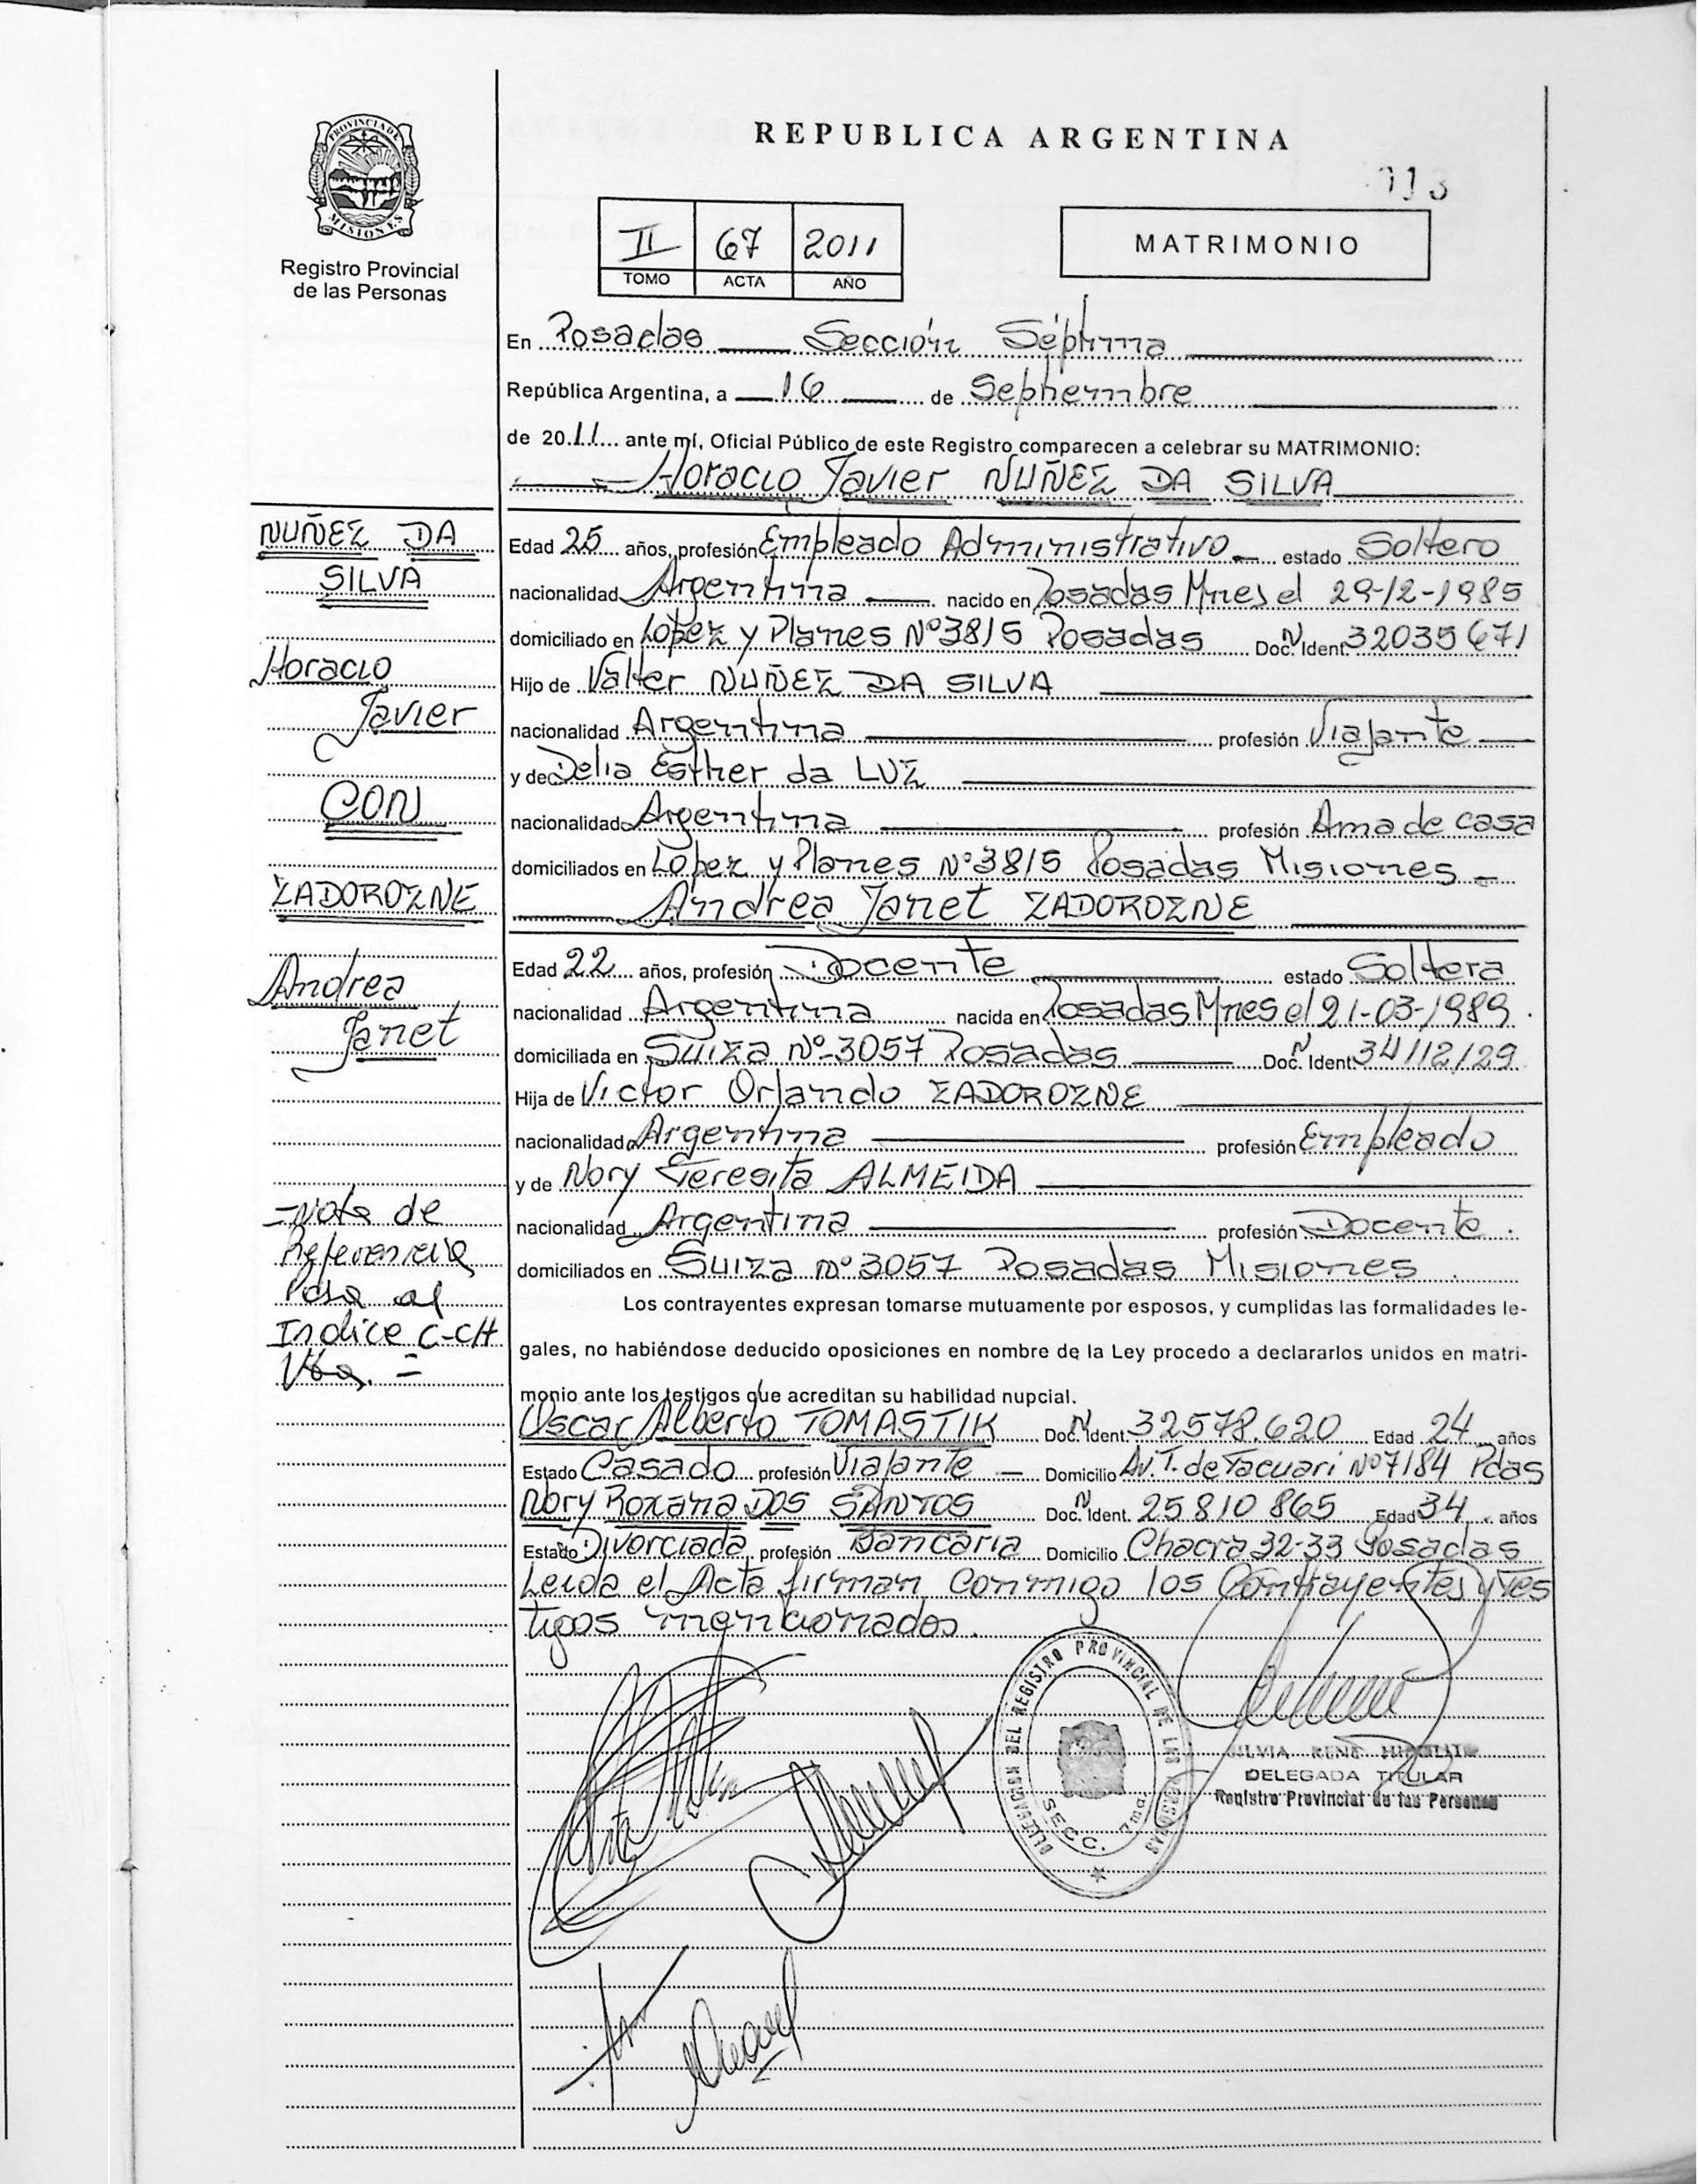 PROVINCIA DE
MISIONES
Registro Provincial
de las Personas
REPUBLICA ARGENTINA
II 67 2011
TOMO ACTA AÑO
MATRIMONIO
En Posadas Sección Séptima
República Argentina, a 16 de Septiembre
de 2011 ante mí, Oficial Público de este Registro comparecen a celebrar su MATRIMONIO:
Horacio Javier NUÑEZ DA SILVA
NUÑEZ DA
SILVA
Horacio
Javier
CON
ZADOROZNE
Andrea
Janet
=Nota de
Referencia
Pasa al
Indice C-CH
Vta. =
Edad 25 años, profesión Empleado Administrativo estado Soltero
nacionalidad Argentina nacido en Posadas Mnes el 29-12-1985
domiciliado en Lopez y Planes Nº3815 Posadas Doc. N Ident. 32035671
Hijo de Valter NUÑEZ DA SILVA
nacionalidad Argentina profesión Viajante
y de Delia Esther da LUZ
nacionalidad Argentina profesión Ama de casa
domiciliados en Lopez y Planes Nº3815 Posadas Misiones
Andrea Janet ZADOROZNE
Edad 22 años, profesión Docente estado Soltera
nacionalidad Argentina nacida en Posadas Mnes el 21-03-1989
domiciliada en Suiza Nº 3057 Posadas Doc. N Ident. 34112129
Hija de Victor Orlando ZADOROZNE
nacionalidad Argentina profesión Empleado
y de Nory Teresita ALMEIDA
nacionalidad Argentina profesión Docente
domiciliados en Suiza nº 3057 Posadas Misiones
Los contrayentes expresan tomarse mutuamente por esposos, y cumplidas las formalidades le-
gales, no habiéndose deducido oposiciones en nombre de la Ley procedo a declararlos unidos en matri-
monio ante los testigos que acreditan su habilidad nupcial.
Oscar Alberto TOMASTIK Doc. N Ident. 32578.620 Edad 24 años
Estado Casado profesión Viajante Domicilio Av. T. de Tacuari Nº7184 Pdas
Nory Roxana DOS SANTOS Doc. N Ident. 25810865 Edad 34 años
Estado Divorciada profesión Bancaria Domicilio Chacra 32-33 Posadas
Leida el Acta firman conmigo los Contrayentes y Tes
tigos mencionados.
DELEGACION DEL REGISTRO PROVINCIAL DE LAS PERSONAS
SECC. 7ma
SILVIA RENE
DELEGADA TITULAR
Registro Provincial de las Personas